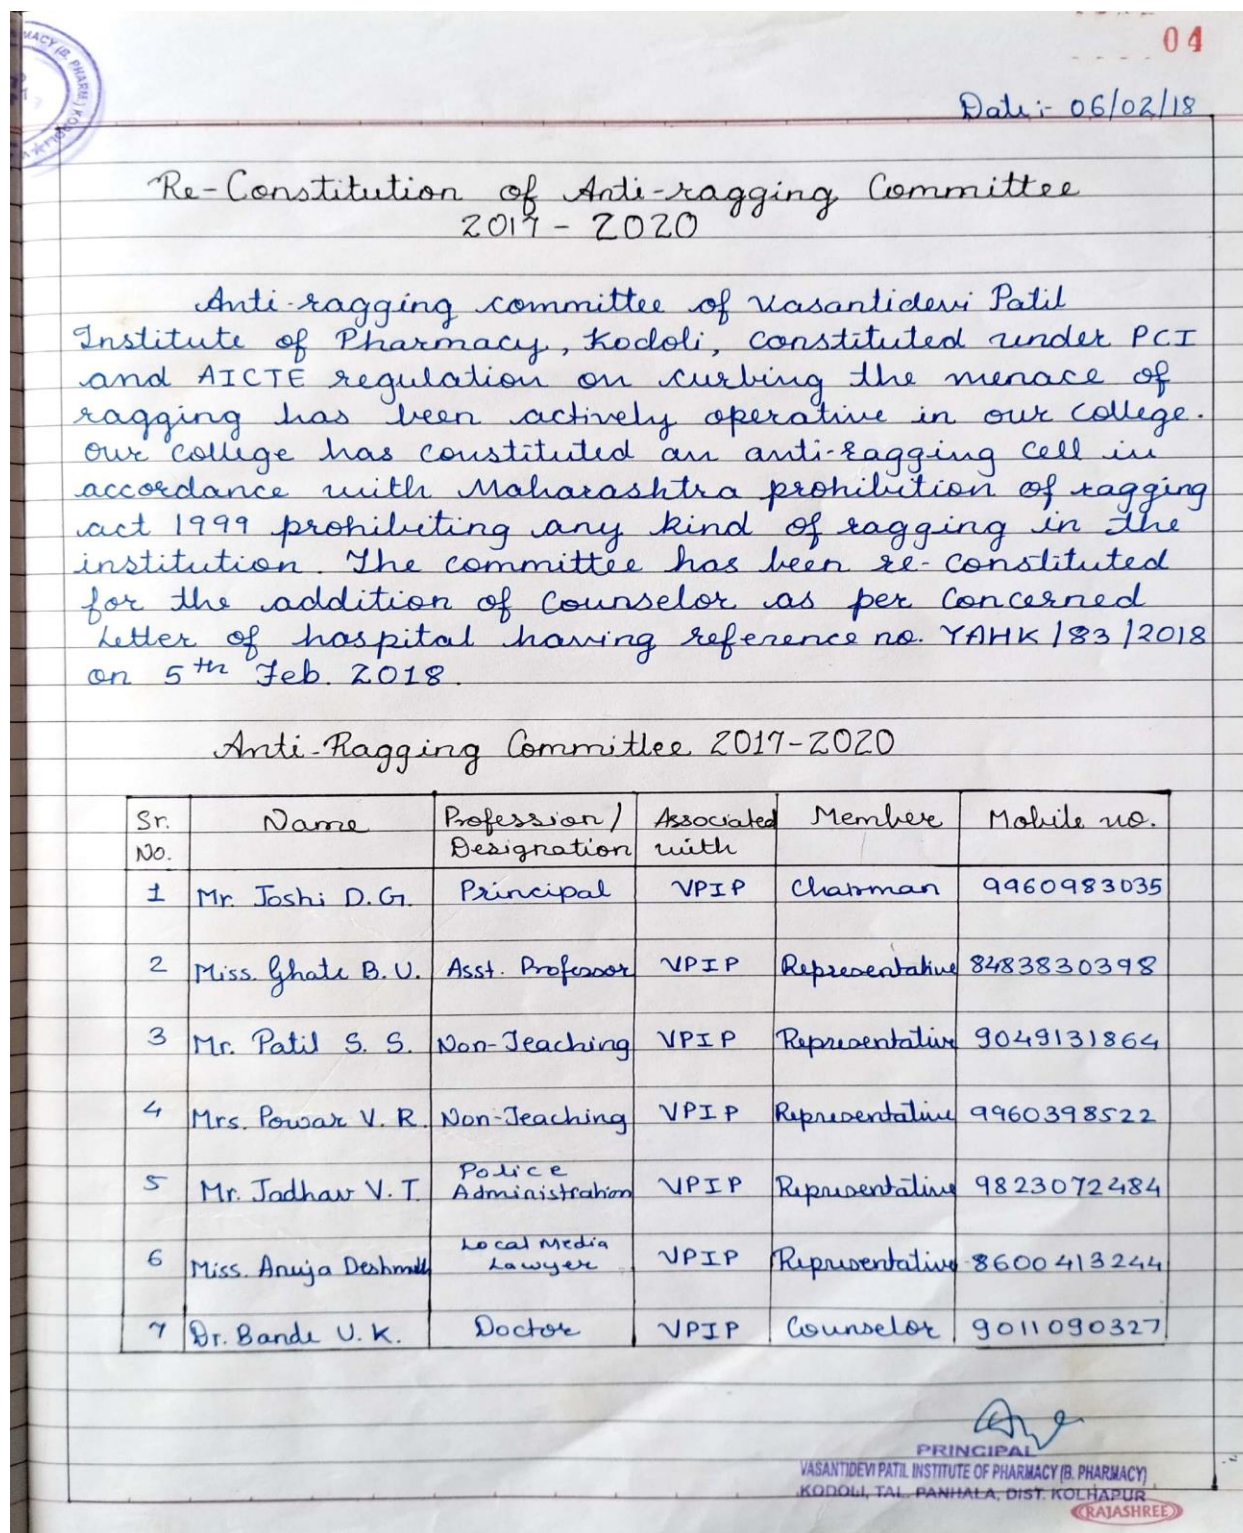 04
Date:- 06/02/18
Re-Constitution of Anti-ragging Committee
2017 - 2020
Anti-ragging committee of Vasantidevi Patil
Institute of Pharmacy, Kodoli, constituted under PCI
and AICTE regulation on curbing the menace of
ragging has been actively operative in our college.
our college has constituted an anti-ragging cell in
accordance with Maharashtra prohibition of ragging
act 1999 prohibiting any kind of ragging in the
institution. The committee has been re-constituted
for the addition of Counselor as per concerned
Letter of hospital having reference no. YAHK/83/2018
on 5th Feb. 2018.
Anti-Ragging Committee 2017-2020
Sr. No. Name Profession/ Designation Associated with Member Mobile no.
1 Mr. Joshi D.G. Principal VPIP Chairman 9960983035
2 Miss. Ghate B.U. Asst. Professor VPIP Representative 8483830398
3 Mr. Patil S. S. Non-Teaching VPIP Representative 9049131864
4 Mrs. Powar V. R. Non-Teaching VPIP Representative 9960398522
5 Mr. Jadhav V. T. Police Administration VPIP Representative 9823072484
6 Miss. Anuja Deshmukh Local Media Lawyer VPIP Representative 8600413244
7 Dr. Bande U. K. Doctor VPIP Counselor 9011090327
PRINCIPAL
VASANTIDEVI PATIL INSTITUTE OF PHARMACY (B. PHARMACY)
KODOLI, TAL. PANHALA, DIST. KOLHAPUR
RAJASHREE